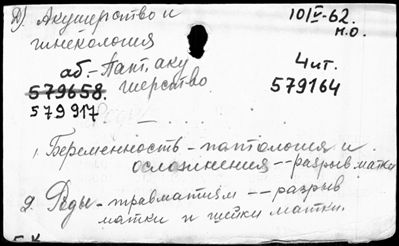 Д) Акушерство и
гинекология
10/V-62.
н.о.
аб-Пат. аку
шерство
579658.
579917
4 чит.
579164
1, Беременность - патология и
осложнения -- разрыв матки
2. Роды - травматизм -- разрыв
матки и шейки матки.